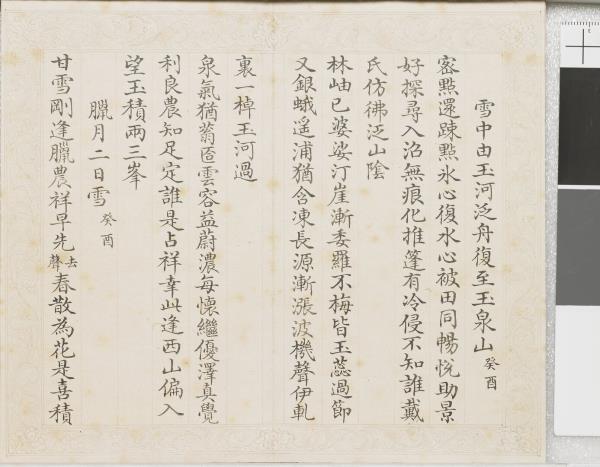 雪中由玉河泛舟復至玉泉山 癸酉
密點還踈點氷心復水心被田同暢悅助景
好探尋入沼無痕化推篷有冷侵不知誰戴
氏仿彿泛山陰
林岫已婆娑汀崖漸委羅不梅皆玉蕊過節
又銀蛾遥浦猶含凍長源漸漲波機聲伊軋
裏一棹玉河過
泉氣猶蓊匌雲容益蔚濃每懷繼優澤真覺
利良農知足定誰是占祥幸此逢西山偏入
望玉積兩三峯
臘月二日雪 癸酉
甘雪剛逢臘農祥早先去聲春散為花是喜積